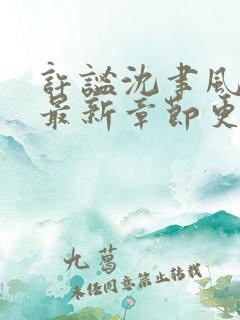 許謐沈聿風
最新章節更
九葛
未经同意禁止转载